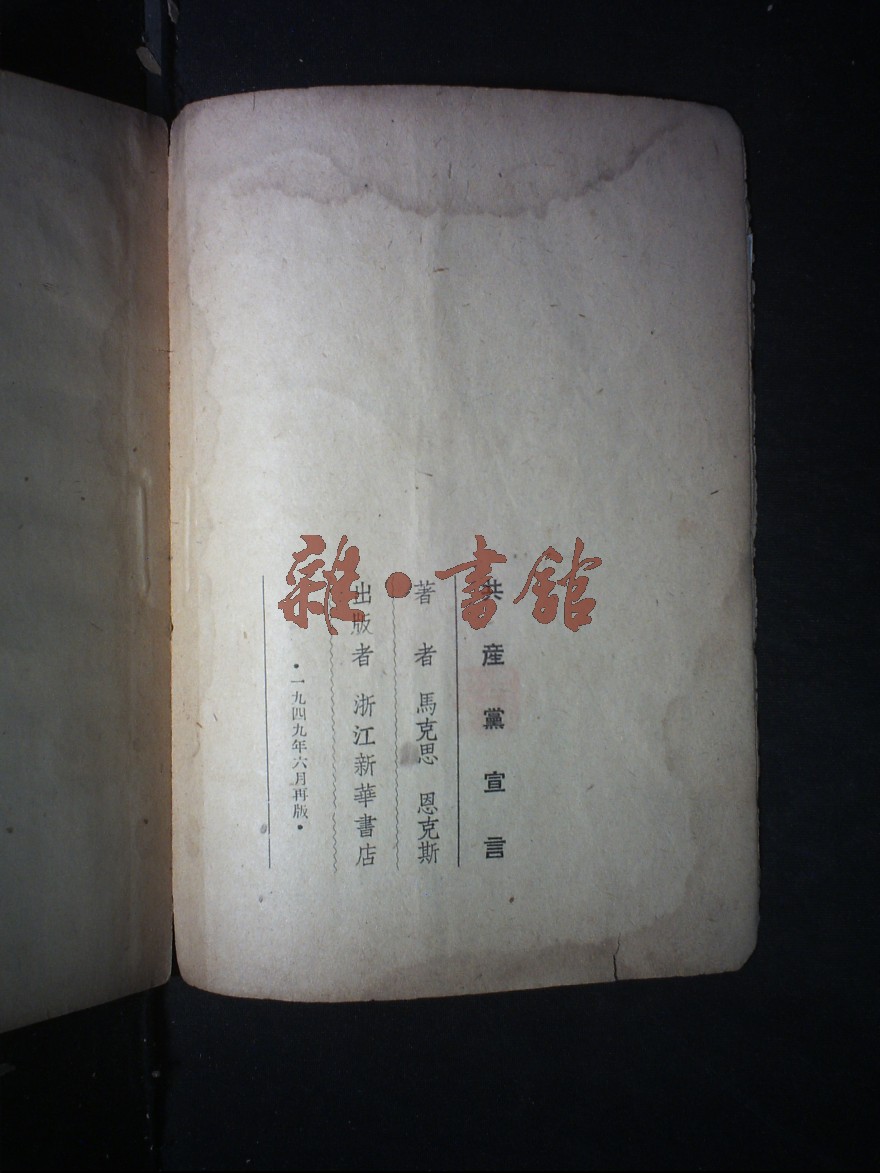 共產黨宣言
著者 馬克思 恩克斯
出版者 浙江新華書店
•一九四九年六月再版•
雜•書館